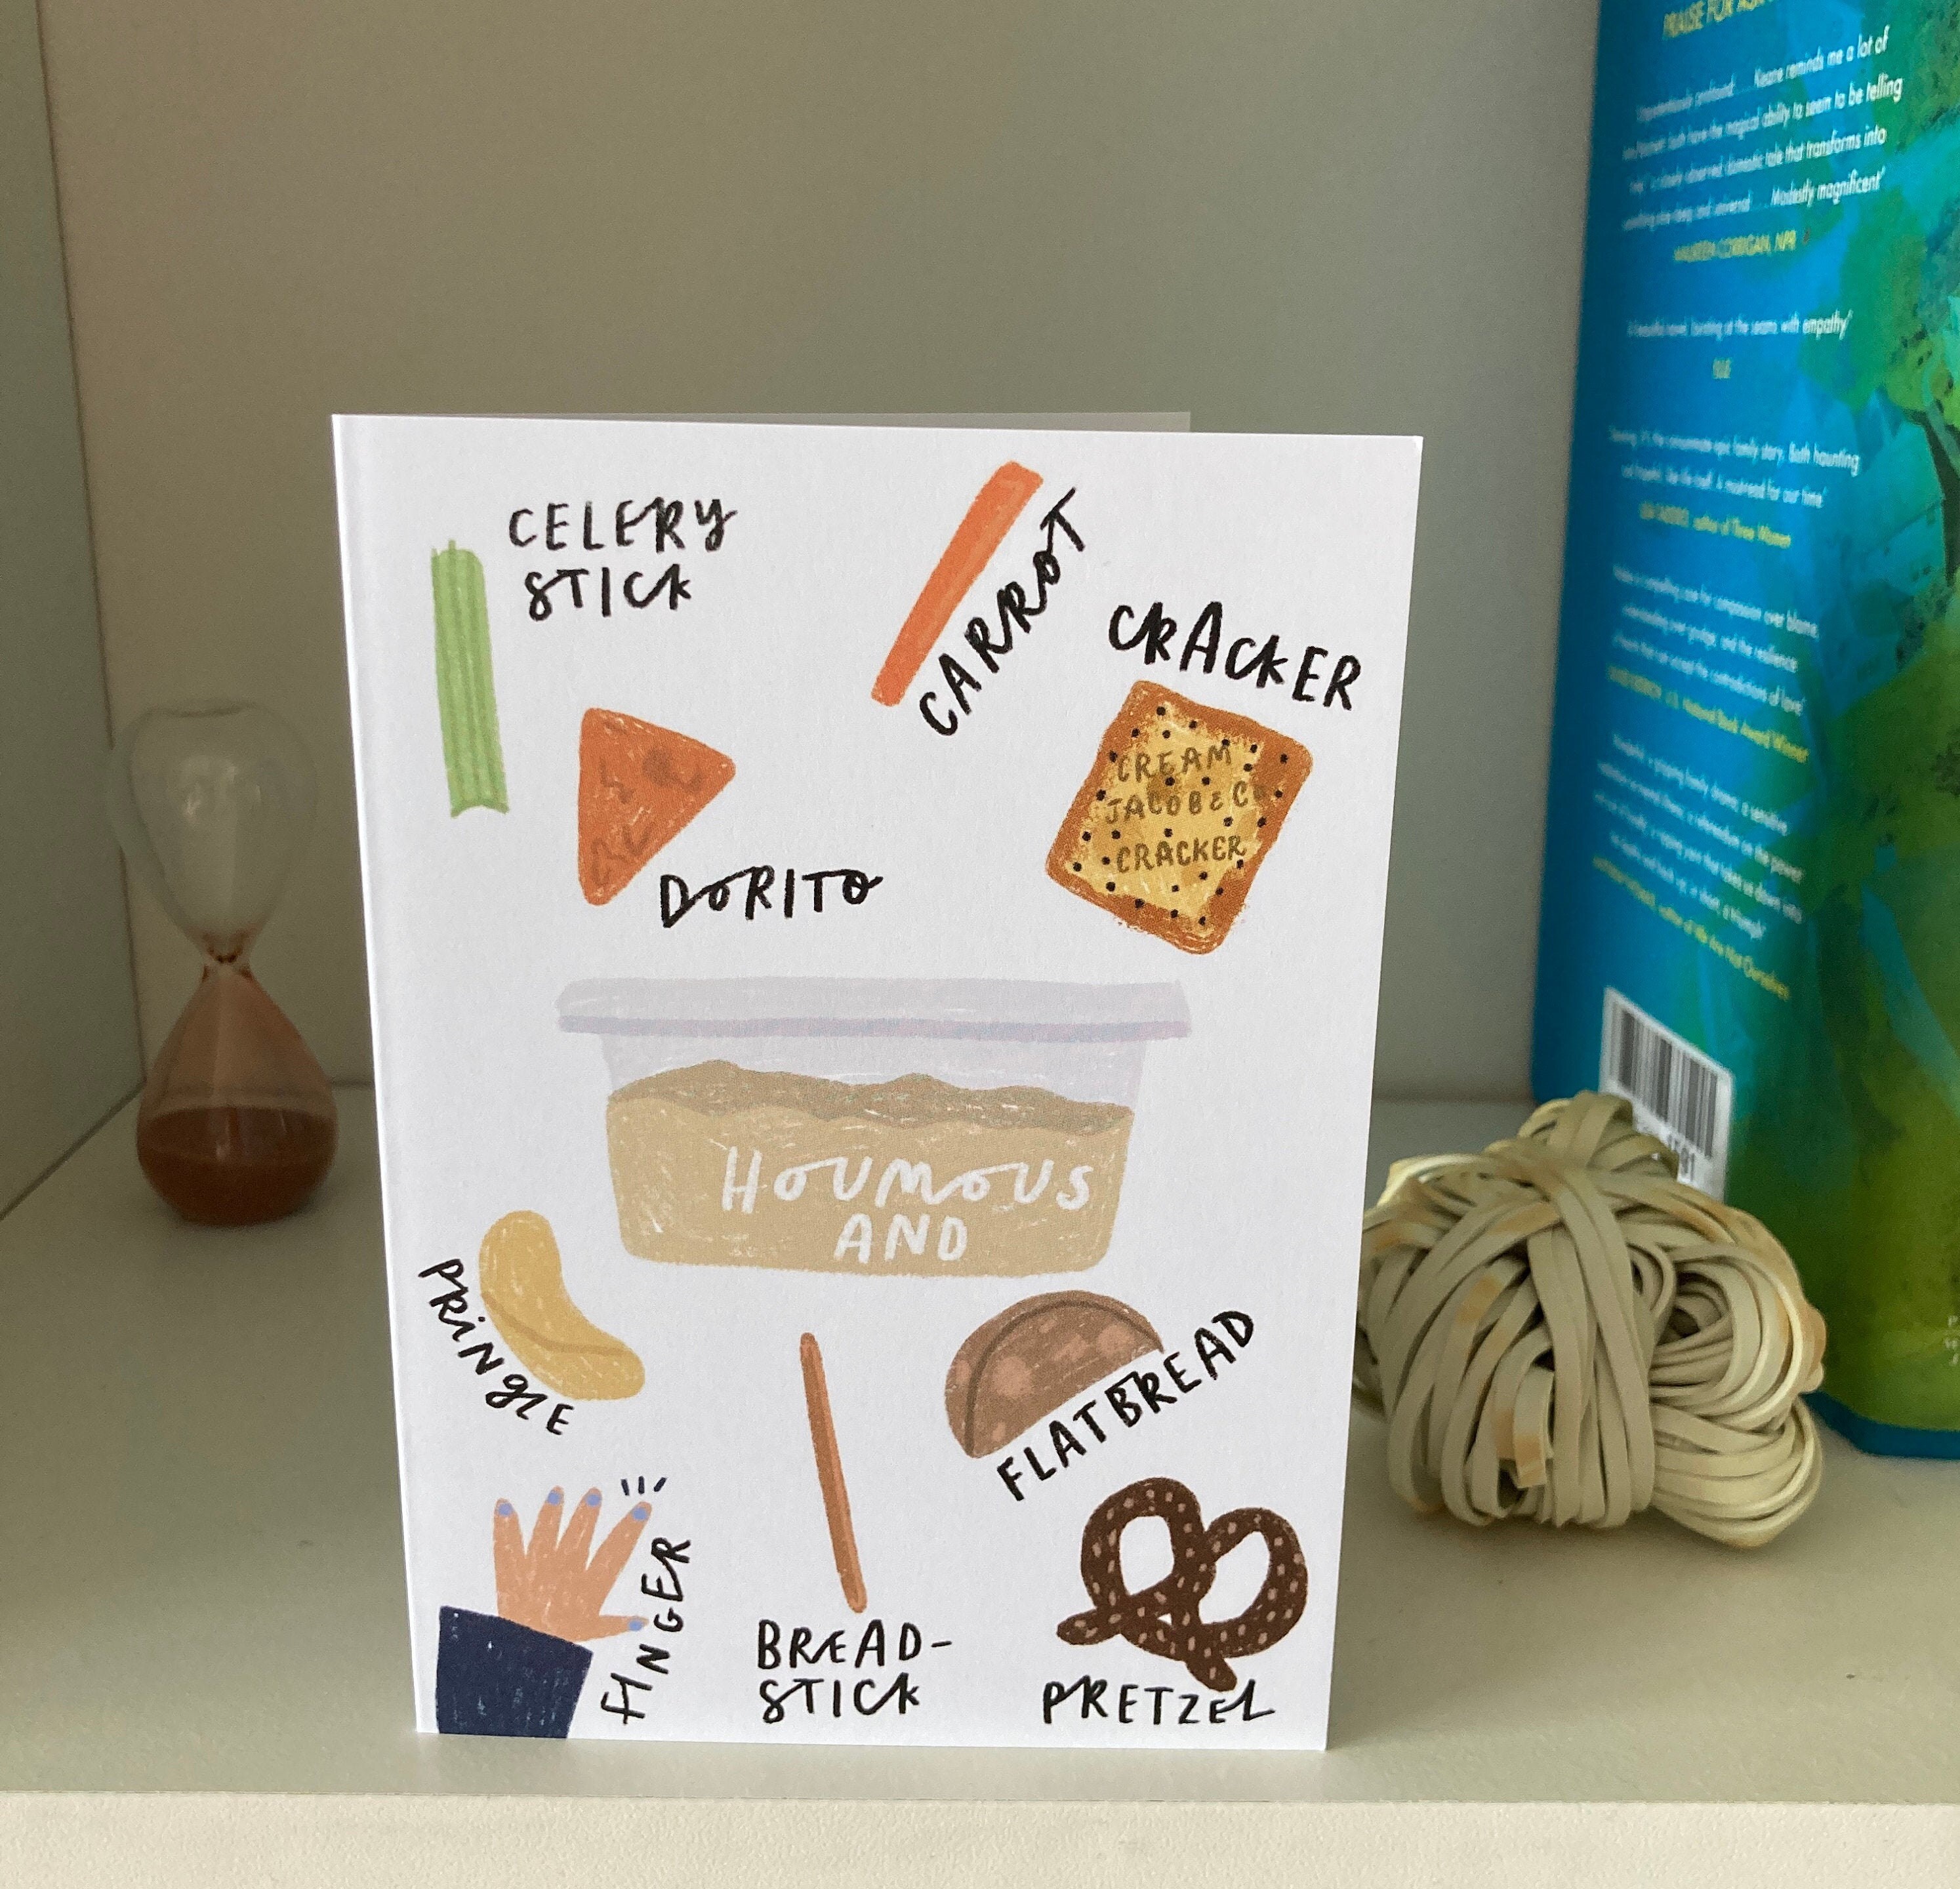 CELERY
STICK
CARROT
CRACKER
CREAM
JACOB & Co
CRACKER
DORITO
HOUMOUS
AND
PRINGLE
FLATBREAD
FINGER
BREAD-
STICK
PRETZEL
PRAISE FOR ASK
Keane reminds me a lot of
both have the magical ability to seem to be telling
closely observed domestic tale that transforms into
something and universal . . . Modestly magnificent'
MAUREEN CORRIGAN, NPR
'A beautiful novel, bursting at the seams with empathy'
ELLE
epic family story. Both haunting
and hopeful, like life itself. A must-read for our time'
author of Three Women
compelling case for compassion over blame,
understanding over grudge, and the resilience
of hearts that can accept the contradictions of love'
U.S. National Book Award Winner
a gripping family drama, a sensitive
author of We Are Not Ourselves